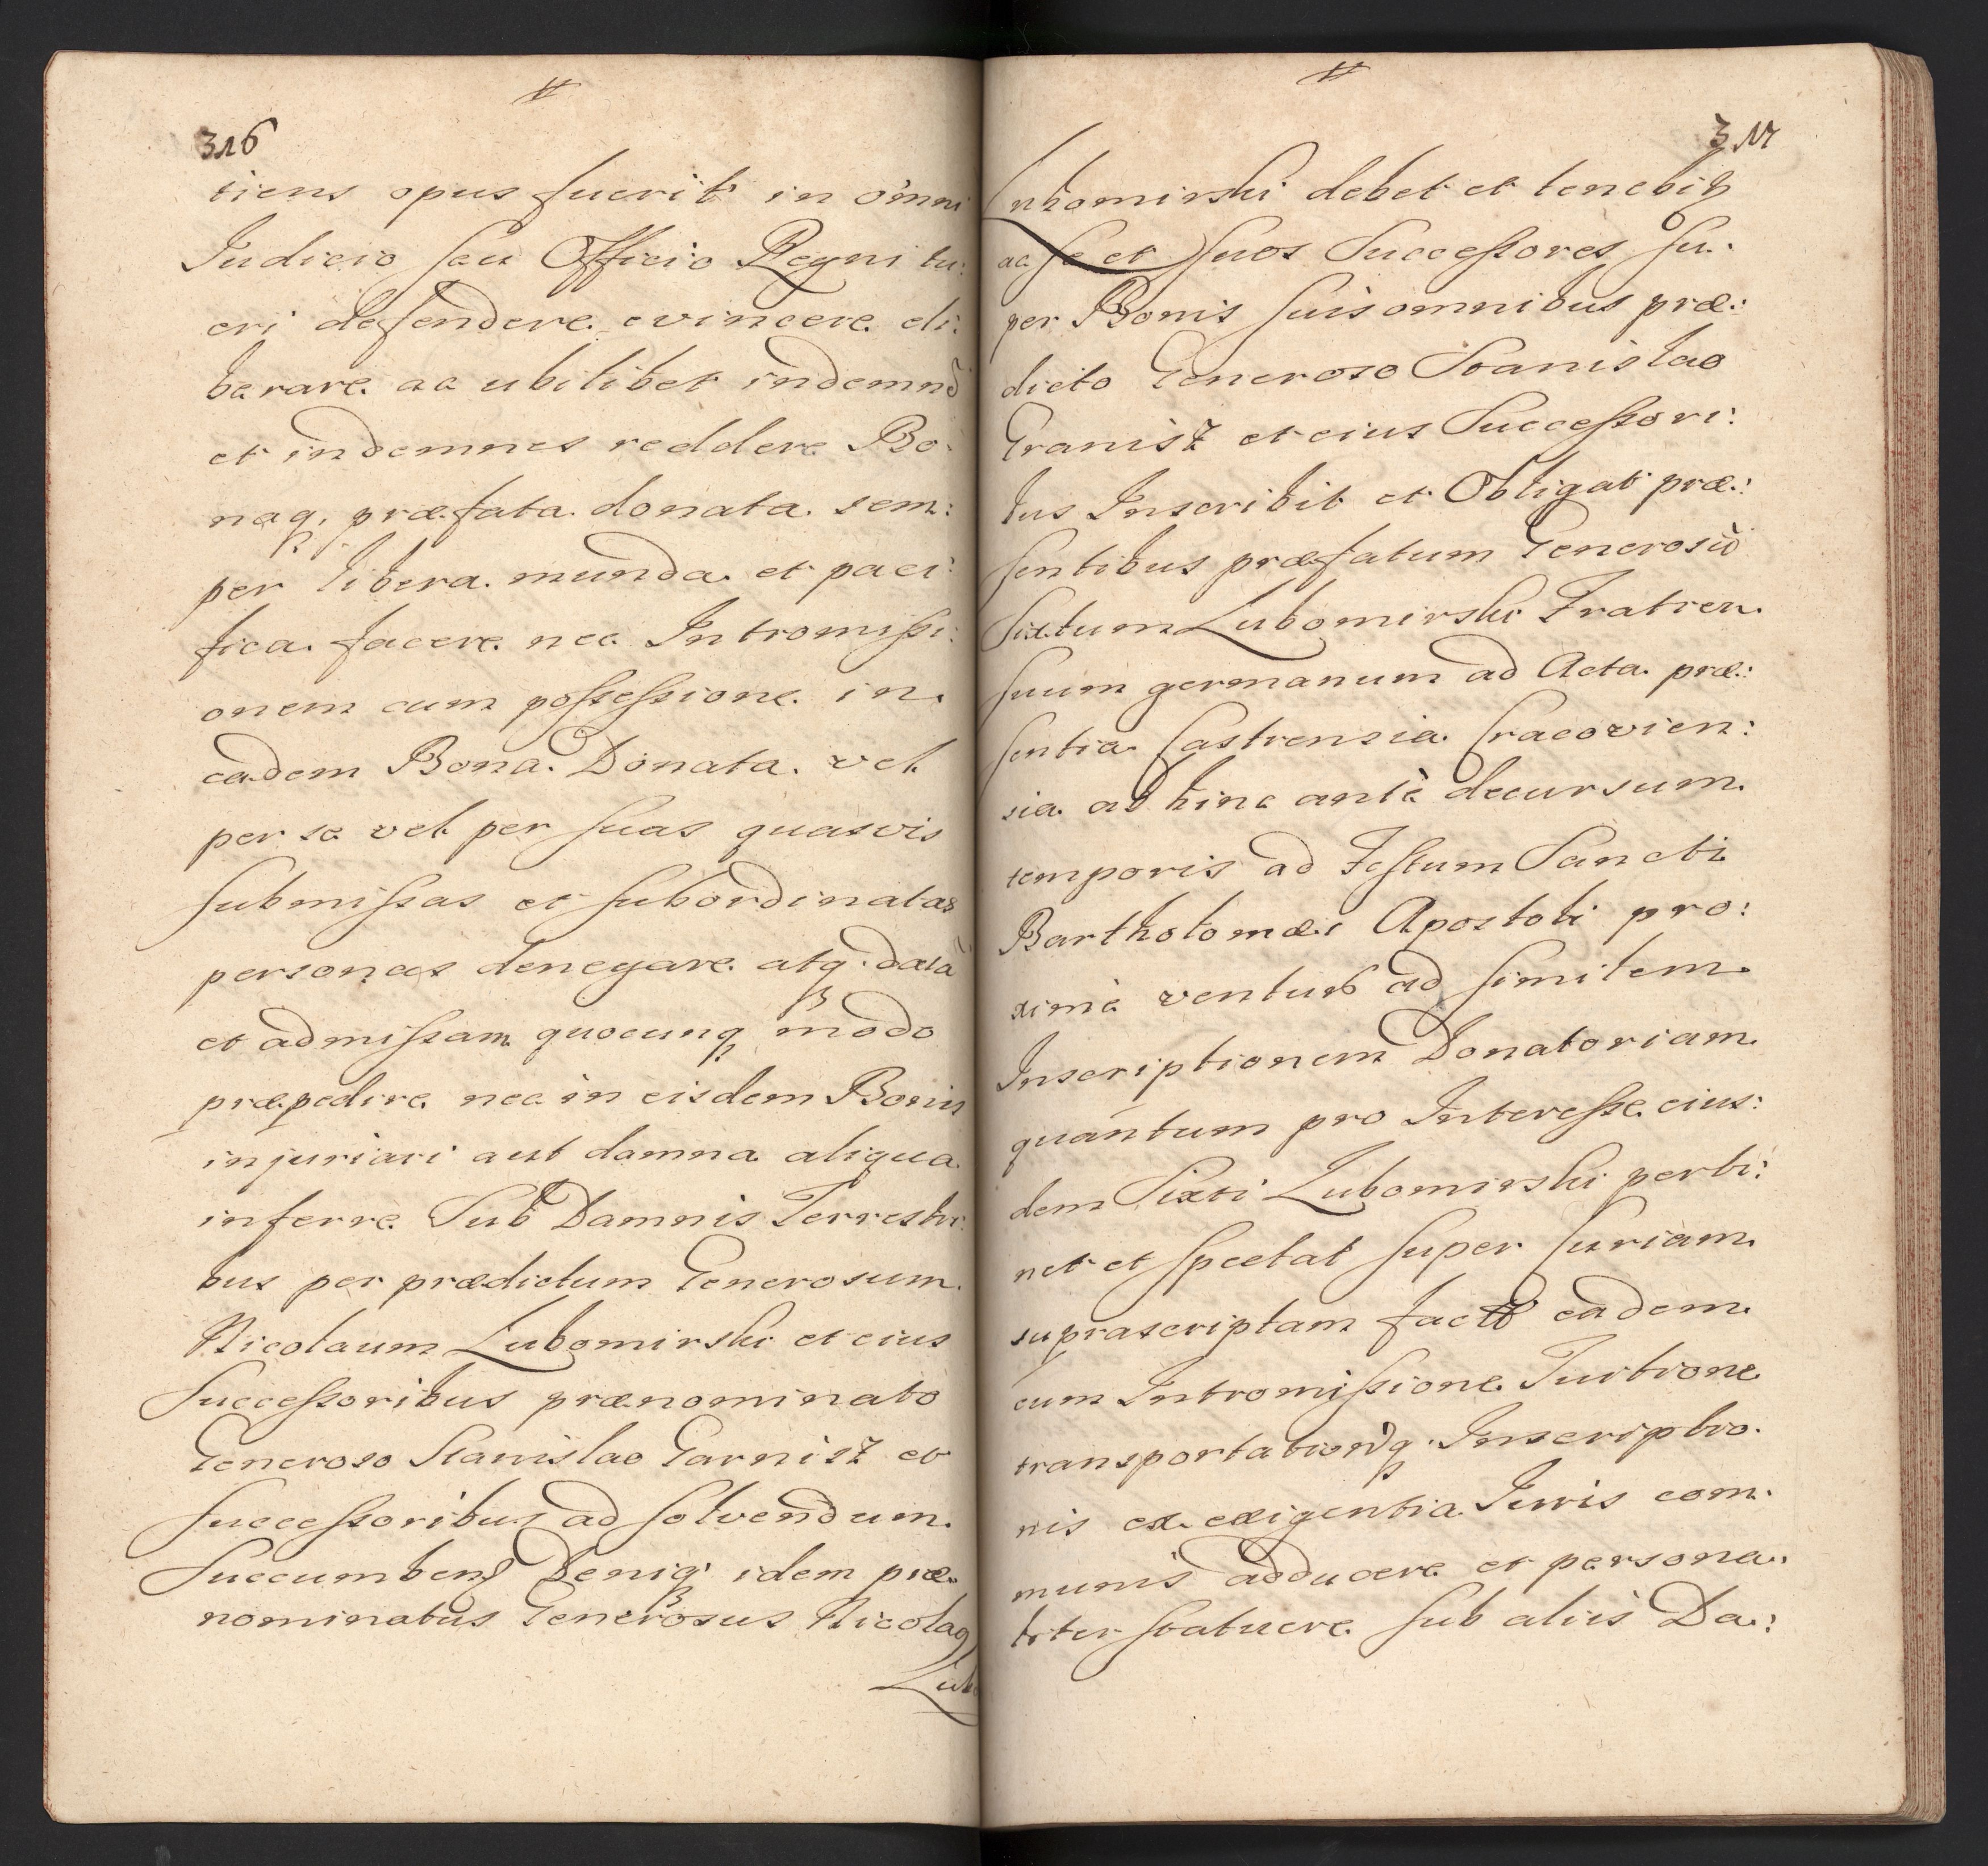 316
tiens opus fuerit in omni
Judicio seu Officio Regni tu:
eri defendere evincere eli:
berare ac ubilibet indemnẽ
et indemnes reddere Bo:
naq, præfata donata sem:
per libera munda et paci:
fica facere nec Intromissi:
onem cum possessione in
eadem Bona Donata vel
per se vel per suas quasvis
submissas et subordinatas
personas denegare atq datã
et admissam quocunq modo
præpedire nec in eisdem Bonis
injuriari aut damna aliqua
inferre Sub Damnis Terrestri:
bus per prædictum Generosum
Nicolaum Lubomirski et eius
Successoribus prænominato
Generoso Stanislao Garnisz et
successoribus ad solvendum
Succumbend Deniq idem præ:
nominatus Generosus Nicolaq
Lubo
317
Lubomirski debet et tenebit
ac se et suos Successores su:
per Bonis suis omnibus præ:
dicto Generoso Stanislao
Granisz et eius Successori:
bus Inscribit et Obligat præ:
sentibus præfatum Generosũ
Sixtum Lubomirski Fratrem
suum germanum ad Acta præ:
sentia Castrensia Cracovien:
sia ab hinc antè decursum
temporis ad Festum Sancti
Bartholomæi Apostoli pro:
ximè venturũ ad similem
Inscriptionem Donatoriam
quantum pro Interesse eius:
dem Sixti Lubomirski perti:
net et spectat super Curiam
suprascriptam factã eadem
cum Intromissione Turtione
transportationisq Inscriptio:
nis ex exigentia Juris com:
munis adducere et persona:
liter statuere sub aliis Da: